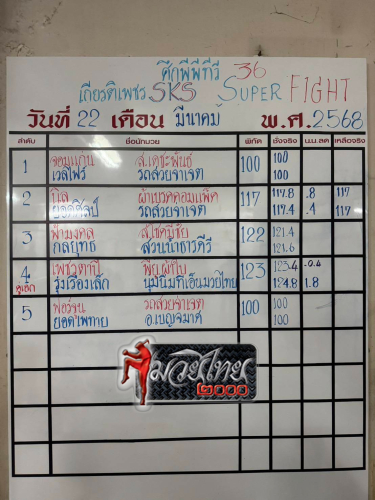 ศึกพีพีทีวี 36
เกียรติเพชร SKS SUPER FIGHT
วันที่ 22 เดือน มีนาคม พ.ศ. 2568
ลำดับ ชื่อนักมวย พิกัด ชั่งจริง น.น.ลด เหลือจริง
1 จอมแก่น ส.เดชะพันธ์ 100 100
เวสไฟร์ รถสวยจาเจต 100
2 117 117.8 .8 117
รถสวยจาเจต 117.4 .4 117
3 ฟ้ามงคล ส.โชคมีชัย 122 121.4
กลยุทธ สวนน้ำธารคีรี 121.6
4 123 123.4 -0.4
คู่เอก รุ่งเรืองเล็ก นุ้มนิ่มทีเอ็นมวยไทย 124.8 1.8
5 รถสวยจาเจต 100 100
ยอดไพทาย อ.เบญจมาศ 100
มวยไทย
๒๐๐๐